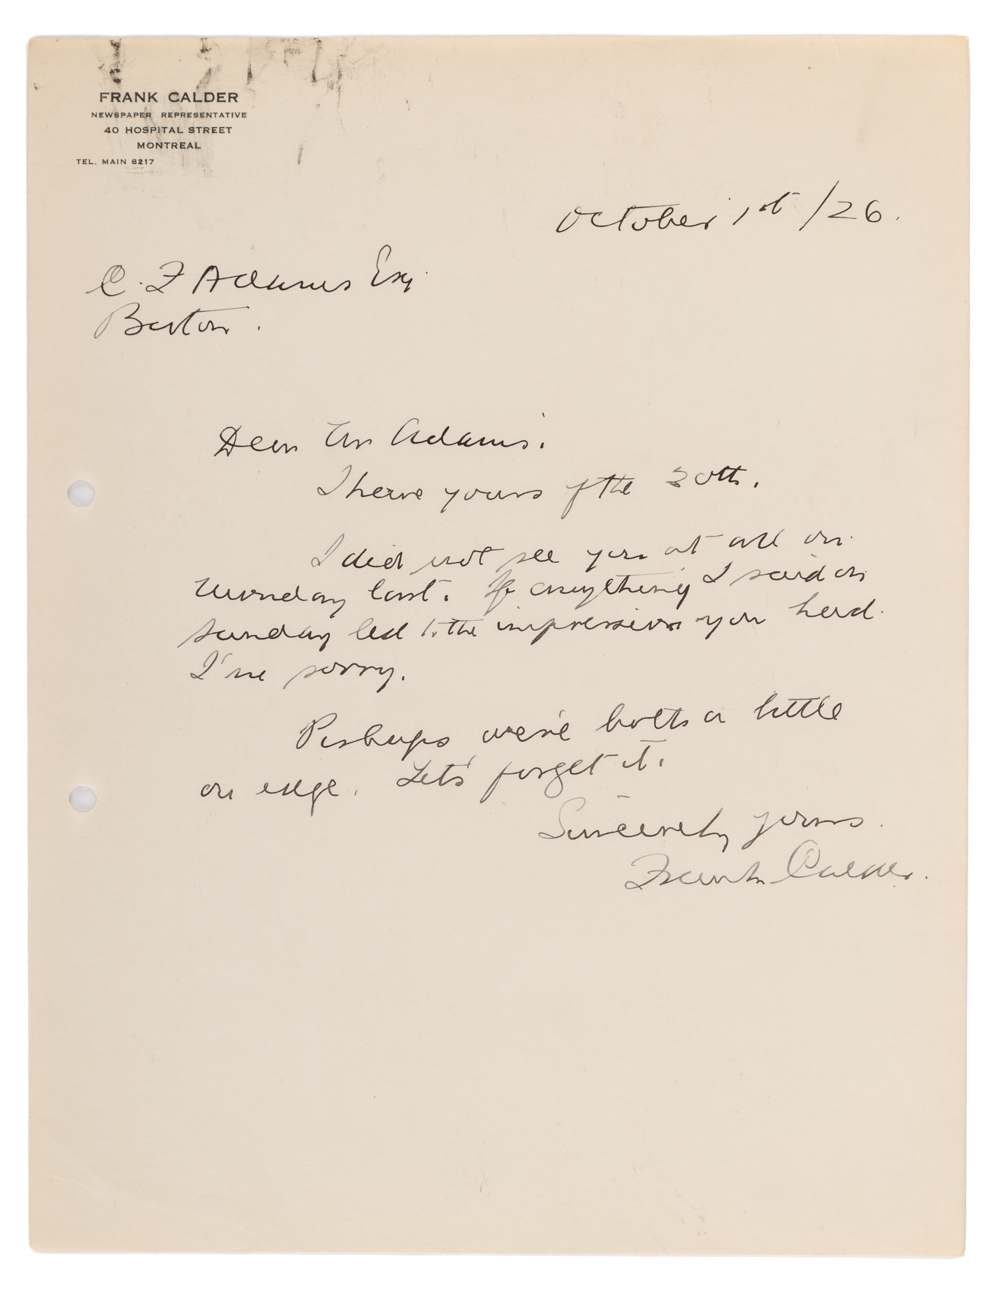 FRANK CALDER
NEWSPAPER REPRESENTATIVE
40 HOSPITAL STREET
MONTREAL
TEL. MAIN 8217
October 1st /26.
C. F Adams Esq.
Boston.
Dear Mr Adams:
I have yours of the 30th.
I did not see you at all on
Monday last. If anything I said on
Sunday led to the impression you had
I'm sorry.
Perhaps we're both a little
on edge. Let's forget it.
Sincerely yours.
Frank Calder.